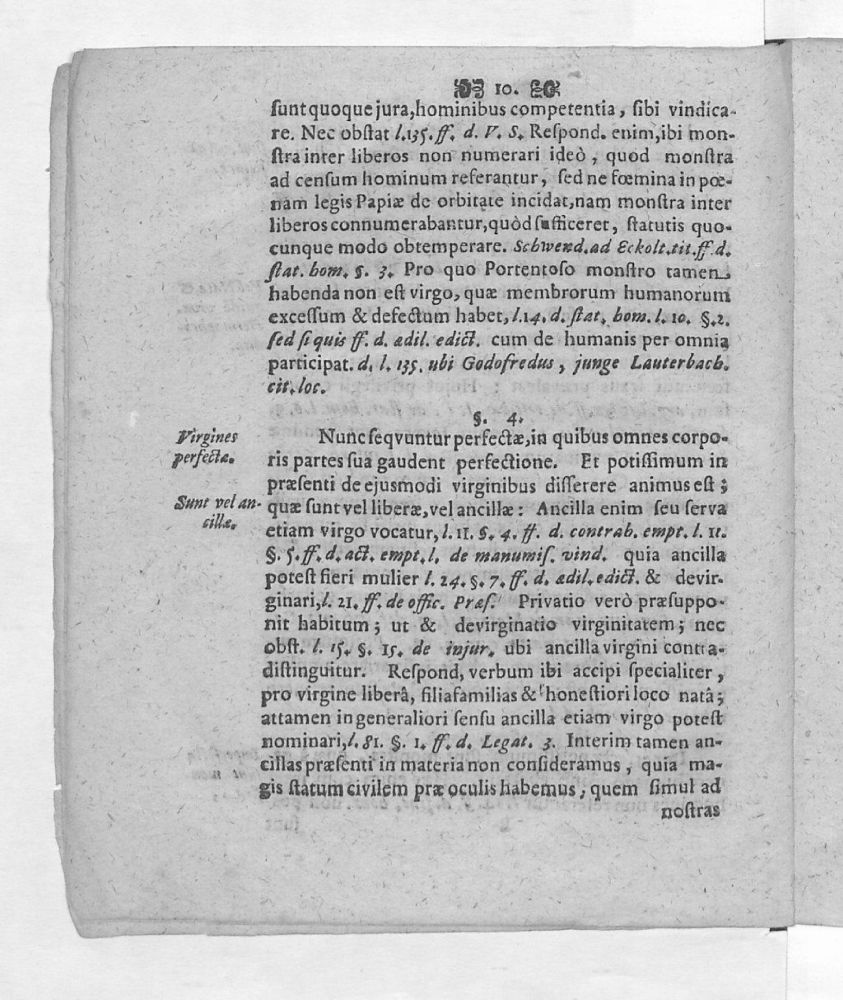 10.
ſunt quoque jura, hominibus competentia, ſibi vindica-
re. Nec obſtat l. 135. ff. d. V. S. Reſpond. enim, ibi mon-
ſtra inter liberos non numerari ideò, quod monſtra
ad cenſum hominum referantur, ſed ne fœmina in pœ-
nam legis Papiæ de orbitate incidat, nam monſtra inter
liberos connumerabantur, quòd ſufficeret, ſtatutis quo-
cunque modo obtemperare. Schwend. ad Eckolt. tit. ff. d.
ſtat. hom. §. 3. Pro quo Portentoſo monſtro tamen
habenda non eſt virgo, quæ membrorum humanorum
exceſſum & defectum habet, l. 14. d. ſtat. hom. l. 10. §. 2.
ſed ſi quis ff. d. ædil. edict. cum de humanis per omnia
participat. d. l. 135. ubi Godofredus, junge Lauterbach.
cit. loc.
§. 4.
Virgines
perfectæ.
Nunc ſeqvuntur perfectæ, in quibus omnes corpo-
ris partes ſua gaudent perfectione. Et potiſſimum in
præſenti de ejusmodi virginibus diſſerere animus eſt;
Sunt vel an-
cillæ.
quæ ſunt vel liberæ, vel ancillæ: Ancilla enim ſeu ſerva
etiam virgo vocatur, l. 11. §. 4. ff. d. contrah. empt. l. 11.
§. 5. ff. d. act. empt. l. de manumiſ. vind. quia ancilla
poteſt fieri mulier l. 24. §. 7. ff. d. ædil. edict. & devir-
ginari, l. 21. ff. de offic. Præſ. Privatio verò præſuppo-
nit habitum; ut & devirginatio virginitatem; nec
obſt. l. 15. §. 15. de injur. ubi ancilla virgini contra-
diſtinguitur. Reſpond, verbum ibi accipi ſpecialiter,
pro virgine liberâ, filiafamilias & honeſtiori loco natâ;
attamen in generaliori ſenſu ancilla etiam virgo poteſt
nominari, l. 81. §. 1. ff. d. Legat. 3. Interim tamen an-
cillas præſenti in materia non conſideramus, quia ma-
gis ſtatum civilem præ oculis habemus, quem ſimul ad
noſtras